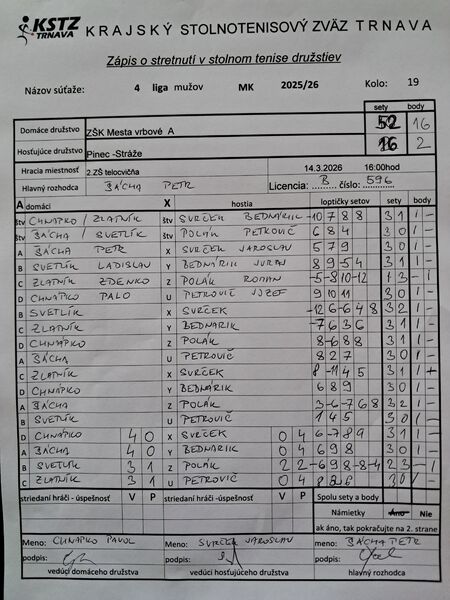 KSTZ TRNAVA KRAJSKÝ STOLNOTENISOVÝ ZVÄZ TRNAVA
Zápis o stretnutí v stolnom tenise družstiev
Názov súťaže: 4 liga mužov MK 2025/26 Kolo: 19
sety body
Domáce družstvo ZŠK Mesta vrbové A 52 16
Hosťujúce družstvo Pinec -Stráže 16 2
Hracia miestnosť 2.ZŠ telocvičňa 14.3.2026 16:00hod
Hlavný rozhodca BÁCHA PETR Licencia: B číslo: 596
A domáci X hostia loptičky setov sety body
štv CHNÁPKO / ZLATNÍK štv SVRČEK BEDNÁRIK -10 7 8 8 3 1 1 -
štv BÁCHA / SVETLÍK štv POLÁK PETROVIČ 6 8 4 3 0 1 -
A BÁCHA PETR X SVRČEK JAROSLAV 5 7 9 3 0 1 -
B SVETLÍK LADISLAV Y BEDNÁRIK JURAJ 8 9 -5 4 3 1 1 -
C ZLATNÍK ZDENKO Z POLÁK ROMAN -5 -8 10 -12 1 3 - 1
D CHNÁPKO PALO U PETROVIČ JOZEF 9 10 11 3 0 1 -
B SVETLÍK X SVRČEK -12 6 -6 4 8 3 2 1 -
C ZLATNÍK Y BEDNÁRIK -7 6 3 6 3 1 1 -
D CHNÁPKO Z POLÁK 8 -6 8 8 3 1 1 -
A BÁCHA U PETROVIČ 8 2 7 3 0 1 -
C ZLATNÍK X SVRČEK 8 -11 4 5 3 1 1
D CHNÁPKO Y BEDNÁRIK 6 8 9 3 0 1 -
A BÁCHA Z POLÁK 3 -6 -7 6 8 3 2 1 -
B SVETLÍK U PETROVIČ 1 4 5 3 0 1 -
D CHNÁPKO 4 0 X SVRČEK 0 4 6 -7 8 9 3 1 1 -
A BÁCHA 4 0 Y BEDNÁRIK 0 4 6 9 8 3 0 1 -
B SVETLÍK 3 1 Z POLÁK 2 2 -6 9 8 -8 -4 2 3 - 1
C ZLATNÍK 3 1 U PETROVIČ 0 4 8 6 3 0 1 -
striedaní hráči - úspešnosť V P striedaní hráči -úspešnosť V P Spolu sety a body
Námietky Áno Nie
ak áno, tak pokračujte na 2. strane
Meno: CHNÁPKO PAVOL Meno: SVRČEK JAROSLAV meno: BÁCHA PETR
podpis: podpis: podpis:
vedúci domáceho družstva vedúci hosťujúceho družstva hlavný rozhodca